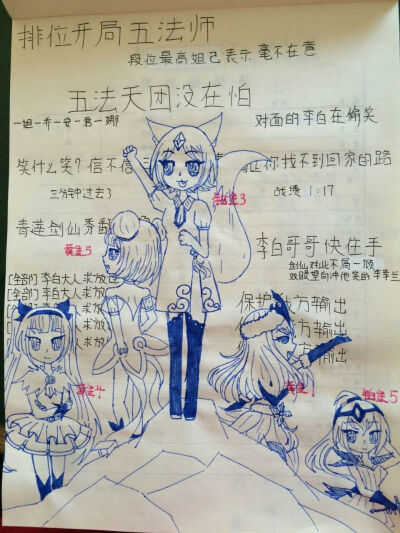 排位开局五法师
段位最高妲己表示毫不在意
五法天团没在怕
一妲一乔一安一君一娜
对面的李白在偷笑
笑什么笑？信不信
你找不到回家的路
三分钟过去了
战绩 1:17
铂金3
青莲剑仙秀翻
李白哥哥快住手
黄金5
剑仙对此不屑一顾
双眼望向冲他笑的 李季兰
[全部] 李白大人求放过
[全部] 李白大人求放
[全部] 李白大人求放
保护我方输出
方输出
方输出
黄金4
黄金1
铂金5